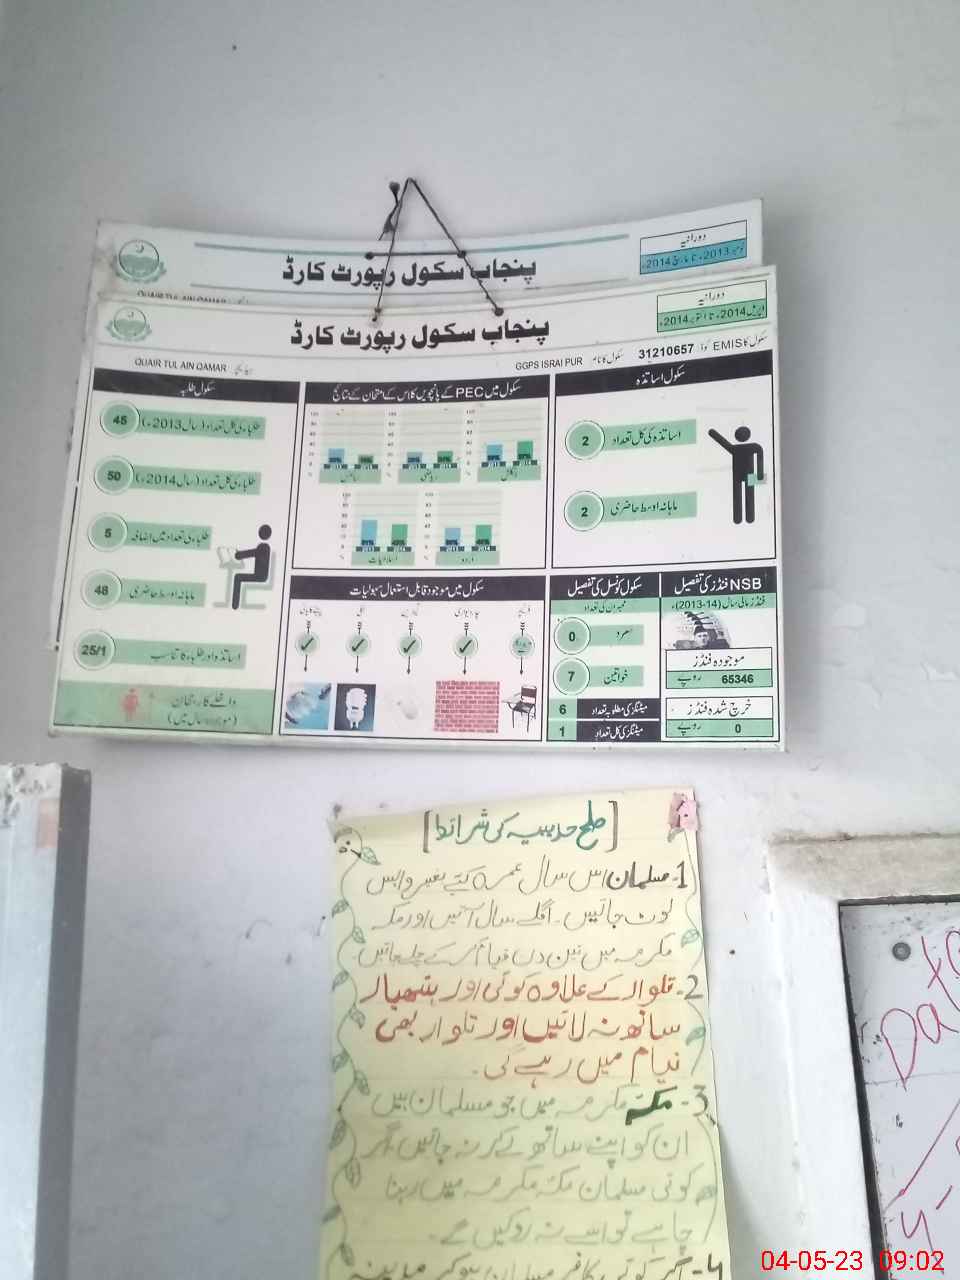 دورانیہ
نومبر 2013ء تا مارچ 2014ء
پنجاب سکول رپورٹ کارڈ
QUAIR TUL AIN QAMAR
دورانیہ
اپریل 2014ء تا اکتوبر 2014ء
پنجاب سکول رپورٹ کارڈ
سکول کا EMIS کوڈ 31210657 سکول کا نام GGPS ISRAI PUR
QUAIR TUL AIN QAMAR
سکول اساتذہ
اساتذہ کی کل تعداد 2
ماہانہ اوسط حاضری 2
سکول میں PEC کے پانچویں کلاس کے امتحان کے نتائج
ریاضی
سائنس
اردو
اسلامیات
سکول طلبہ
طلباء کی کل تعداد (سال 2013ء) 45
طلباء کی کل تعداد (سال 2014ء) 50
طلباء کی تعداد میں اضافہ 5
ماہانہ اوسط حاضری 48
اساتذہ اور طلباء کا تناسب 25/1
داخلے کا رجحان
(موجودہ سال میں)
سکول میں موجود قابل استعمال سہولیات
چاردیواری
سکول کونسل کی تفصیل
ممبران کی تعداد
مرد 0
خواتین 7
میٹنگز کی مطلوبہ تعداد 6
میٹنگز کی کل تعداد 1
NSB فنڈز کی تفصیل
فنڈز مالی سال (14-2013)ء
موجودہ فنڈز
65346 روپے
خرچ شدہ فنڈز
0 روپے
[صلح حدیبیہ کی شرائط]
1- مسلمان اس سال عمرہ کیے بغیر واپس
لوٹ جائیں۔ اگلے سال آئیں اور مکہ
مکرمہ میں تین دن قیام کر کے چلے جائیں
2- تلوار کے علاوہ کوئی اور ہتھیار
ساتھ نہ لائیں اور تلوار بھی
نیام میں رہے گی۔
3- مکہ مکرمہ میں جو مسلمان ہیں
ان کو اپنے ساتھ لے کر نہ جائیں اگر
کوئی مسلمان مکہ مکرمہ میں رہنا
چاہے تو اسے نہ روکیں گے۔
4- اگر کوئی کافر مسلمان ہو کر مدینہ
Date
4-
04-05-23 09:02